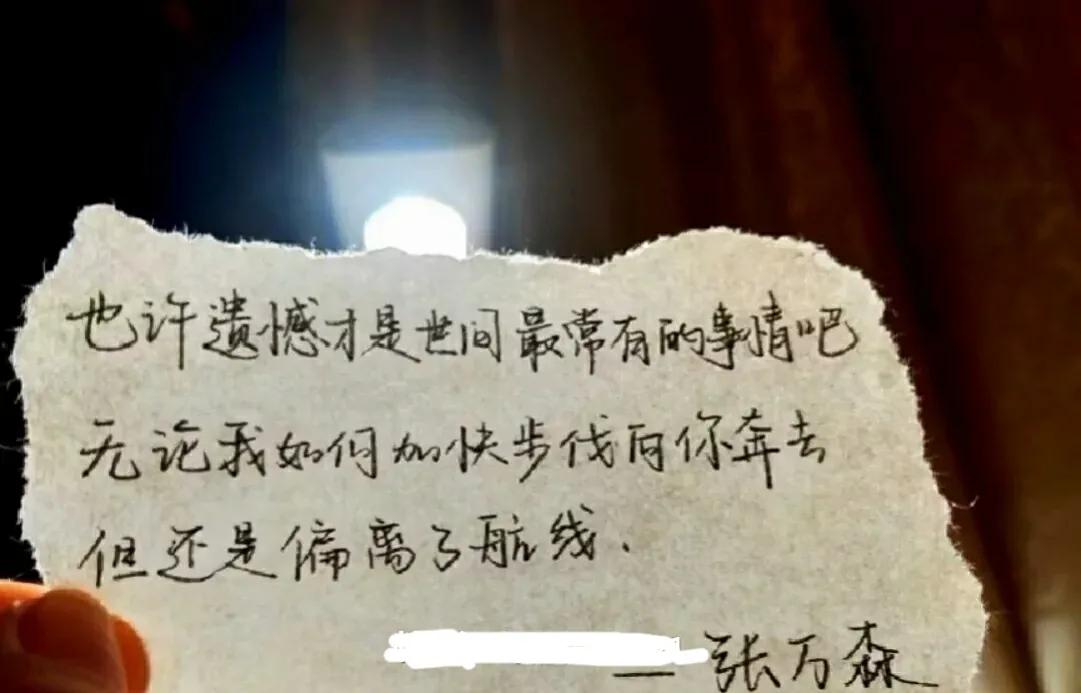 也许遗憾才是世间最常有的事情吧
无论我如何加快步伐向你奔去
但还是偏离了航线.
— 张万森